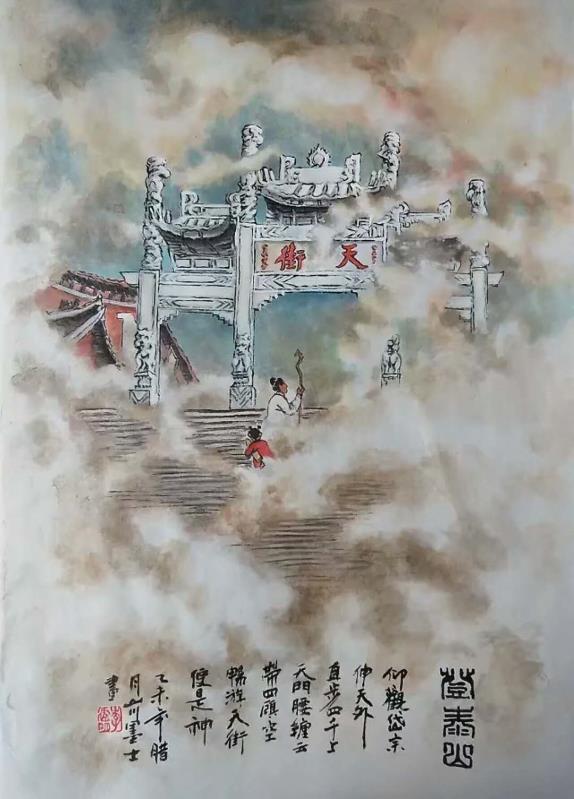 天街
登泰山
仰觀岱宗
伸天外
直步四千上
天門腰纏云
帶四顧空
暢游天街
便是神
乙未年腊
月墨士